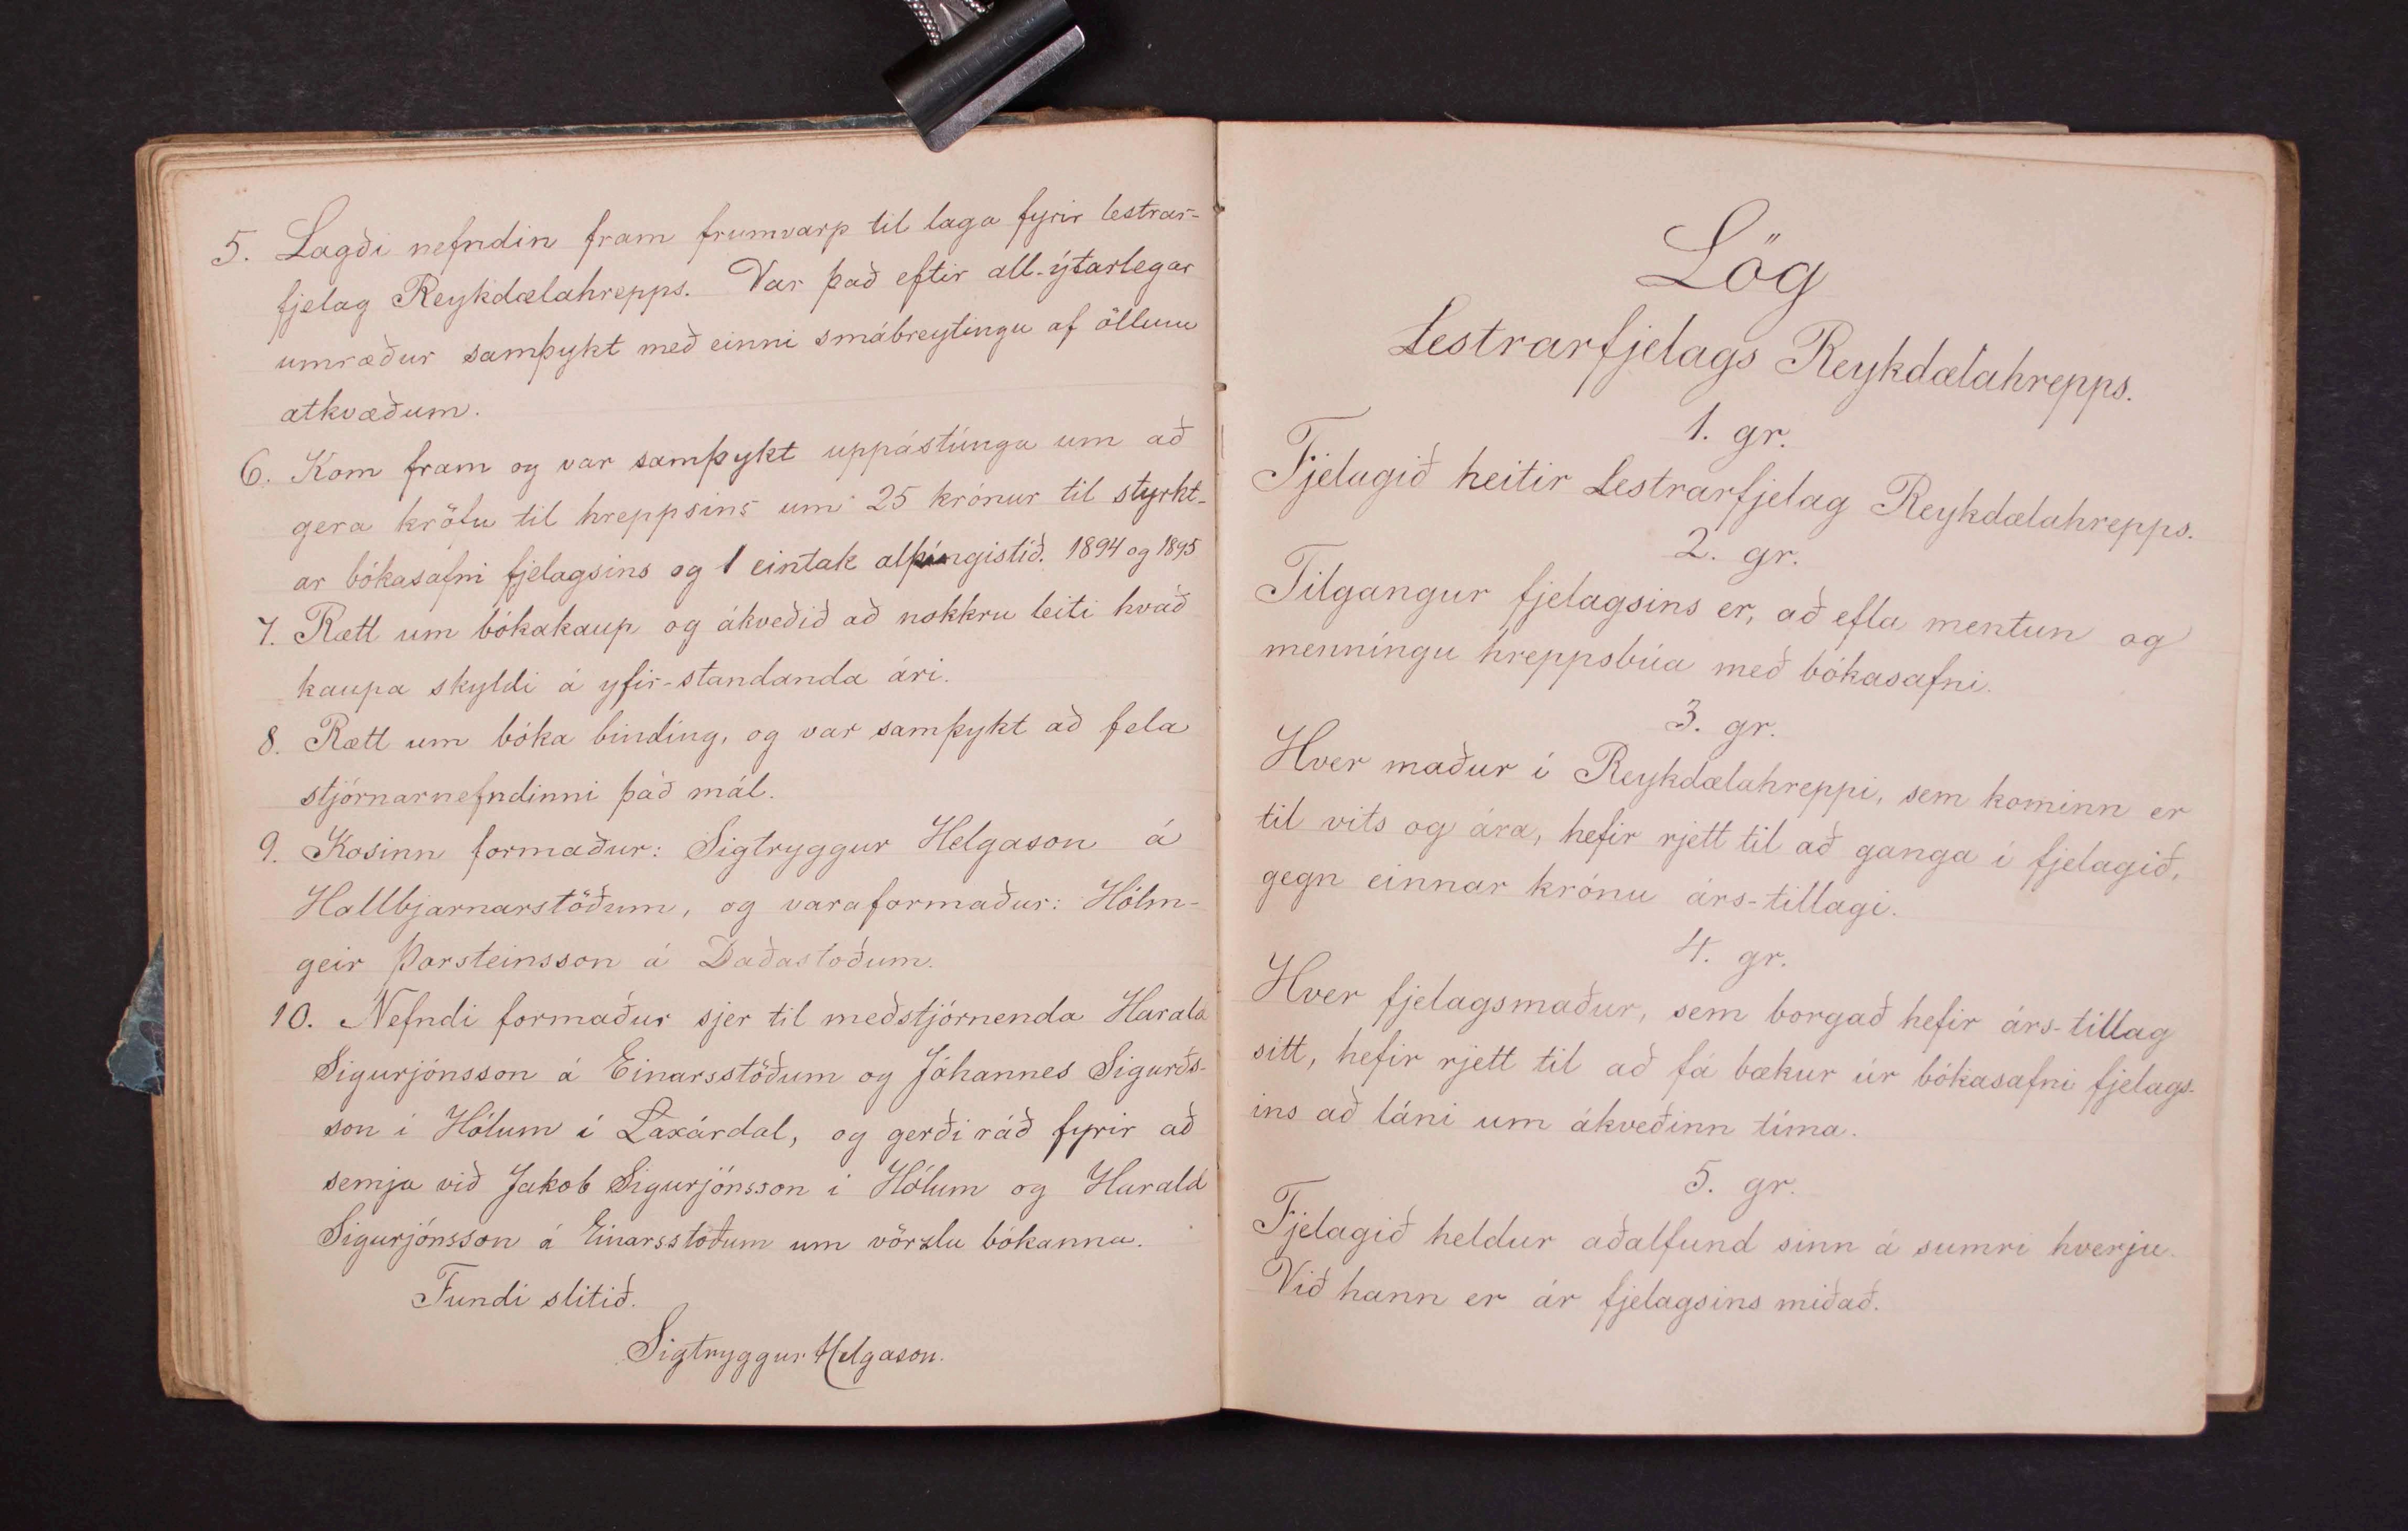 5. Lagði nefndin fram frumvarp til laga fyrir lestrar-
fjelag Reykdælahrepps. Var það eftir all-ýtarlegar
umræður samþykt með einni smábreytingu af öllum
atkvæðum.
6. Kom fram og var samþykt uppástúnga um að
gera kröfu til hreppsins um 25 krónur til styrkt-
ar bókasafni fjelagsins og 1 eintak alþingistíð. 1894 og 1895
7. Rætt um bókakaup og ákveðið að nokkru leiti hvað
kaupa skyldi á yfir-standanda ári.
8. Rætt um bóka bindíng, og var samþykt að fela
stjórnarnefndinni það mál.
9. Kosinn formaður: Sigtryggur Helgason á
Hallbjarnarstöðum, og varaformaður: Hólm-
geir Þorsteinsson á Daðastöðum.
10. Nefndi formaður sjer til meðstjórnenda Harald
Sigurjónsson á Einarsstöðum og Jóhannes Sigurðs-
son í Hólum í Laxárdal, og gerði ráð fyrir að
semja við Jakob Sigurjónsson í Hólum og Harald
Sigurjónsson á Einarsstöðum um vörzlu bókanna.
Fundi slitið.
Sigtryggur Helgason.
Lög
Lestrarfjelags Reykdælahrepps.
1. gr.
Fjelagið heitir Lestrarfjelag Reykdælahrepps.
2. gr.
Tilgangur fjelagsins er, að efla mentun og
menníngu hreppsbúa með bókasafni.
3. gr.
Hver maður í Reykdælahreppi, sem kominn er
til vits og ára, hefir rjett til að ganga í fjelagið,
gegn einnar krónu árs-tillagi.
4. gr.
Hver fjelagsmaður, sem borgað hefir árs-tillag
sitt, hefir rjett til að fá bækur úr bókasafni fjelags-
ins að láni um ákveðinn tíma.
5. gr.
Fjelagið heldur aðalfund sinn á sumri hverju.
Við hann er ár fjelagsins miðað.